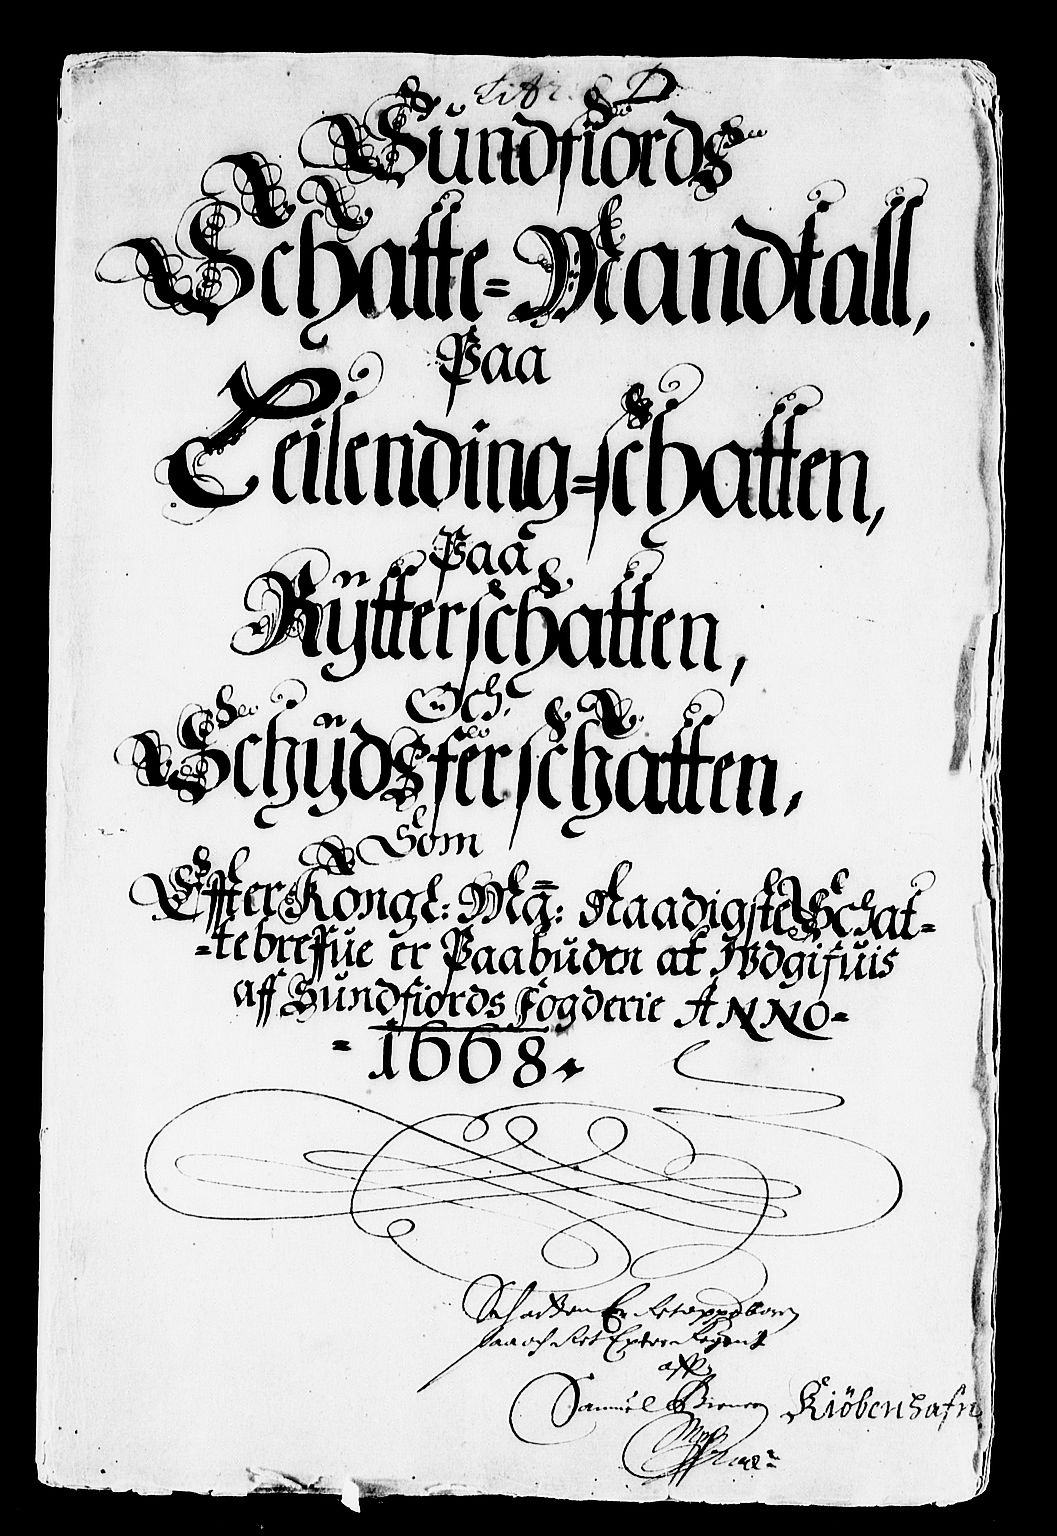 Litr: D
Sundfiords
Schatte=Mandtall,
Paa
Leilending=schatten,
Paa
Rÿtterschatten,
Och,
Schÿdsferschatten,
Som
Effter Kongl: Mạ: Naadigste Schat=
=tebreffue er Paabuden at Wdgifuis
aff Sundfiords Fogderie ANNO=
=1668.
Schatten Er
aff
Samuel
Kiöbenhafn